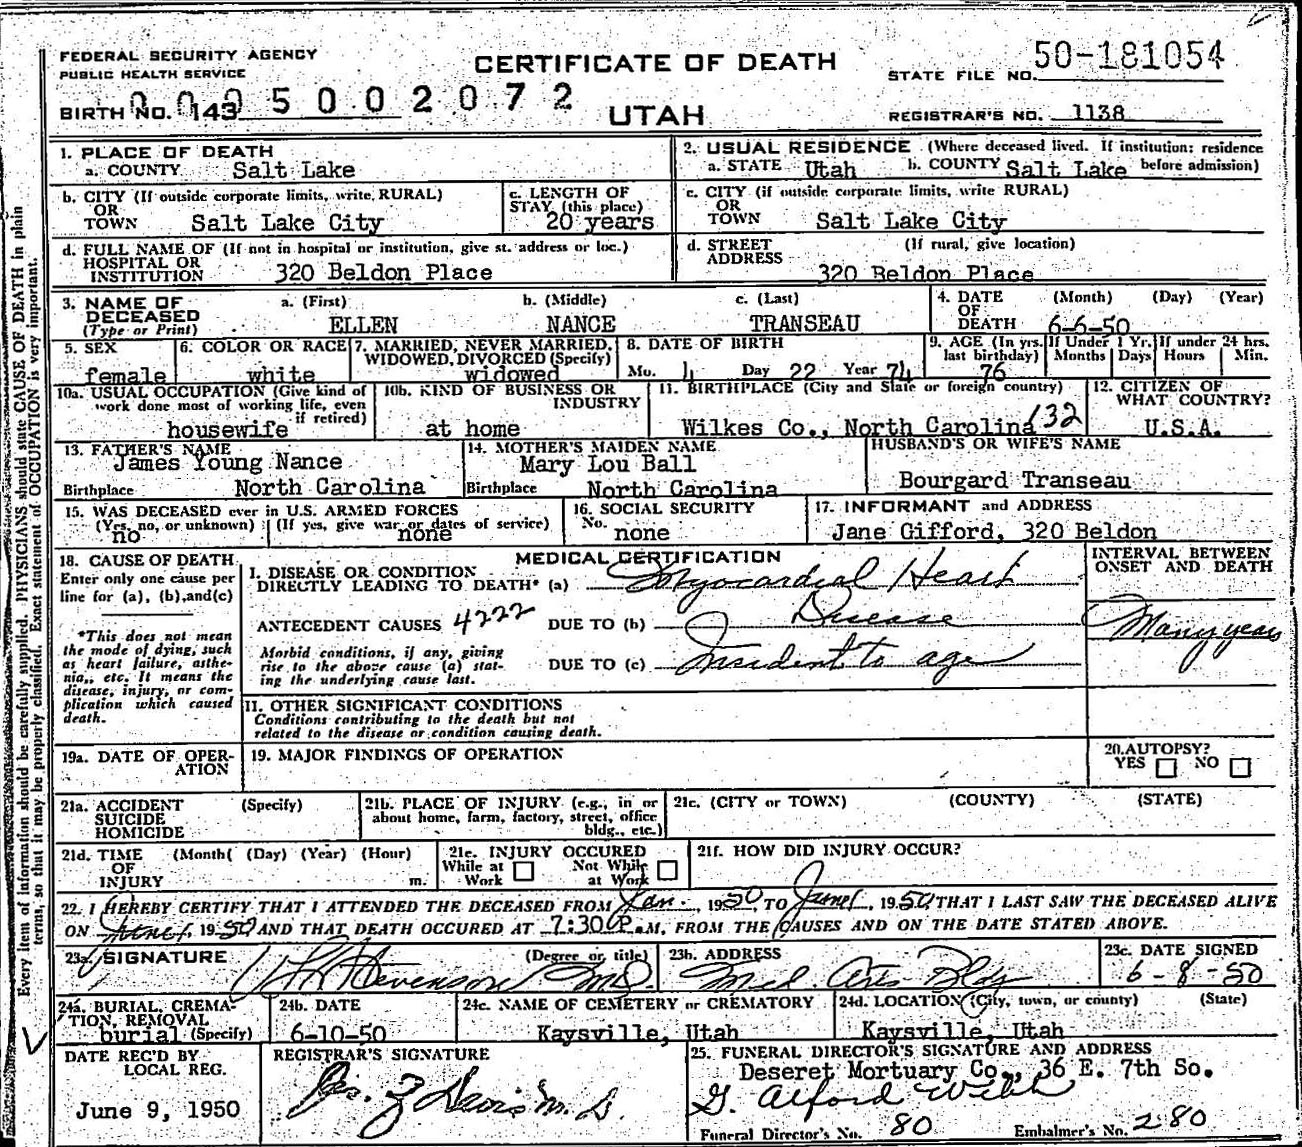 FEDERAL SECURITY AGENCY
PUBLIC HEALTH SERVICE
CERTIFICATE OF DEATH
STATE FILE NO. 50-181054
BIRTH NO. 143
0005002072
UTAH
REGISTRAR'S NO. 1138
Every item of information should be carefully supplied. PHYSICIANS should state CAUSE OF DEATH in plain
terms, so that it may be properly classified. Exact statement of OCCUPATION is very important.
1. PLACE OF DEATH
a. COUNTY Salt Lake
2. USUAL RESIDENCE (Where deceased lived. If institution: residence
a. STATE Utah b. COUNTY Salt Lake before admission)
b. CITY (If outside corporate limits, write RURAL)
OR
TOWN Salt Lake City
c. LENGTH OF
STAY (this place)
20 years
c. CITY (if outside corporate limits, write RURAL)
OR
TOWN Salt Lake City
d. FULL NAME OF (If not in hospital or institution, give st. address or loc.)
HOSPITAL OR
INSTITUTION 320 Beldon Place
d. STREET (If rural, give location)
ADDRESS
320 Beldon Place
3. NAME OF
DECEASED
(Type or Print)
a. (First) b. (Middle) c. (Last)
ELLEN NANCE TRANSEAU
4. DATE (Month) (Day) (Year)
OF
DEATH 6-6-50
5. SEX
female
6. COLOR OR RACE
white
7. MARRIED, NEVER MARRIED,
WIDOWED, DIVORCED (Specify)
widowed
8. DATE OF BIRTH
Mo. 4 Day 22 Year 74
9. AGE (In yrs. last birthday)
76
If Under 1 Yr.
Months Days
If under 24 hrs.
Hours Min.
10a. USUAL OCCUPATION (Give kind of
work done most of working life, even
if retired)
housewife
10b. KIND OF BUSINESS OR
INDUSTRY
at home
11. BIRTHPLACE (City and State or foreign country)
Wilkes Co., North Carolina 132
12. CITIZEN OF
WHAT COUNTRY?
U.S.A.
13. FATHER'S NAME
James Young Nance
Birthplace North Carolina
14. MOTHER'S MAIDEN NAME
Mary Lou Ball
Birthplace North Carolina
HUSBAND'S OR WIFE'S NAME
Bourgard Transeau
15. WAS DECEASED ever in U.S. ARMED FORCES
(Yes, no, or unknown) (If yes, give war or dates of service)
no none
16. SOCIAL SECURITY
No. none
17. INFORMANT and ADDRESS
Jane Gifford, 320 Beldon
18. CAUSE OF DEATH
Enter only one cause per
line for (a), (b), and (c)
*This does not mean
the mode of dying, such
as heart failure, asthe-
nia, etc. It means the
disease, injury, or com-
plication which caused
death.
MEDICAL CERTIFICATION
I. DISEASE OR CONDITION
DIRECTLY LEADING TO DEATH* (a) Myocardial Heart
ANTECEDENT CAUSES 4222 DUE TO (b) Disease
Morbid conditions, if any, giving
rise to the above cause (a) stat-
ing the underlying cause last.
DUE TO (c) Insident to age
INTERVAL BETWEEN
ONSET AND DEATH
Many years
II. OTHER SIGNIFICANT CONDITIONS
Conditions contributing to the death but not
related to the disease or condition causing death.
19a. DATE OF OPER-
ATION
19. MAJOR FINDINGS OF OPERATION
20. AUTOPSY?
YES NO
21a. ACCIDENT (Specify)
SUICIDE
HOMICIDE
21b. PLACE OF INJURY (e.g., in or
about home, farm, factory, street, office
bldg., etc.)
21c. (CITY or TOWN) (COUNTY) (STATE)
21d. TIME (Month( (Day) (Year) (Hour)
OF
INJURY m.
21e. INJURY OCCURED
While at Work Not While at Work
21f. HOW DID INJURY OCCUR?
22. I HEREBY CERTIFY THAT I ATTENDED THE DECEASED FROM Jan. , 1950, TO June 1, 1950 THAT I LAST SAW THE DECEASED ALIVE
ON June 1, 1950 AND THAT DEATH OCCURED AT 7:30 P.M, FROM THE CAUSES AND ON THE DATE STATED ABOVE.
23a. SIGNATURE (Degree or title)
Stevenson MD.
23b. ADDRESS
Med. Arts Bldg
23c. DATE SIGNED
6-8-50
24a. BURIAL, CREMA-
TION, REMOVAL
burial (Specify)
24b. DATE
6-10-50
24c. NAME OF CEMETERY or CREMATORY
Kaysville, Utah
24d. LOCATION (City, town, or county) (State)
Kaysville, Utah
DATE REC'D BY
LOCAL REG.
June 9, 1950
REGISTRAR'S SIGNATURE
Z Davis M.D.
25. FUNERAL DIRECTOR'S SIGNATURE AND ADDRESS
Deseret Mortuary Co., 36 E. 7th So.
G. Alford Webb
Funeral Director's No. 80 Embalmer's No. 280